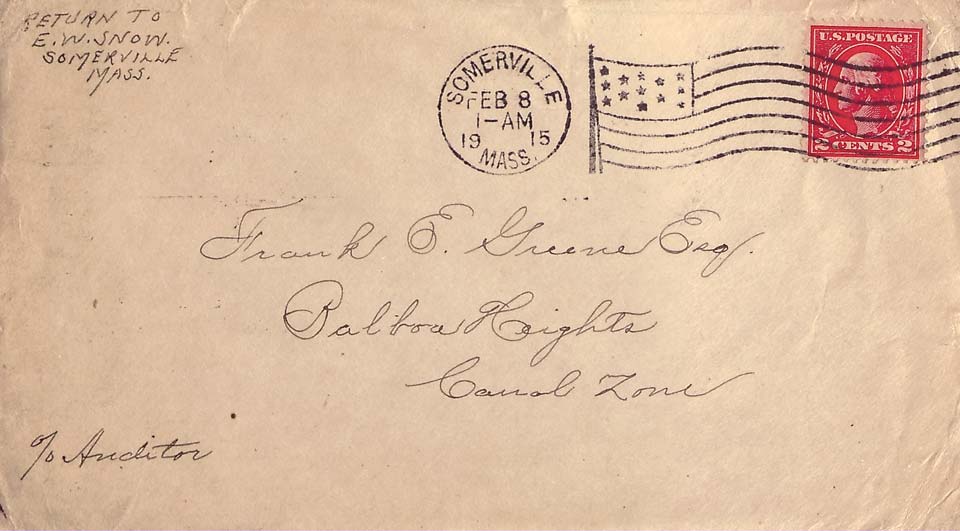 RETURN TO
E.W. SNOW.
SOMERVILLE
MASS.
SOMERVILLE
FEB 8
1-AM
19 15
MASS.
U.S. POSTAGE
2 CENTS 2
Frank E. Greene Esq.
Balboa Heights
Canal Zone
c/o Auditor